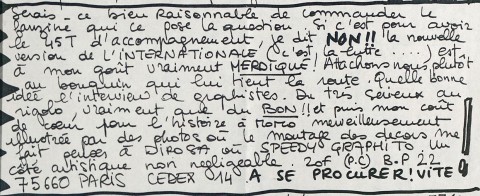 Serais-ce bien Raisonnable de commander le
fanzine qui ce pose la question. Si c'est pour avoir
le 45T d'accompagnement, je dit NON!! la nouvelle
version de L'INTERNATIONALE (c'est la lutte ....) est
à mon goût vraiment MERDIQUE! Attachons nous plutôt
au bouquin qui lui tient la route. Quelle bonne
idée l'interview de graphistes. Du très sérieux au
rigolo, vraiment que du BON!! et puis mon coût
de cœur pour l'histoire à merveilleusement
illustrée par des photos où le montage des decors me
fait penser à DIROSA ou SPEEDY GRAPHITO. Un
côté artistique non négligeable. 20f (P.C) B.P 22
75660 PARIS CEDEX 14 A SE PROCURER! VITE!